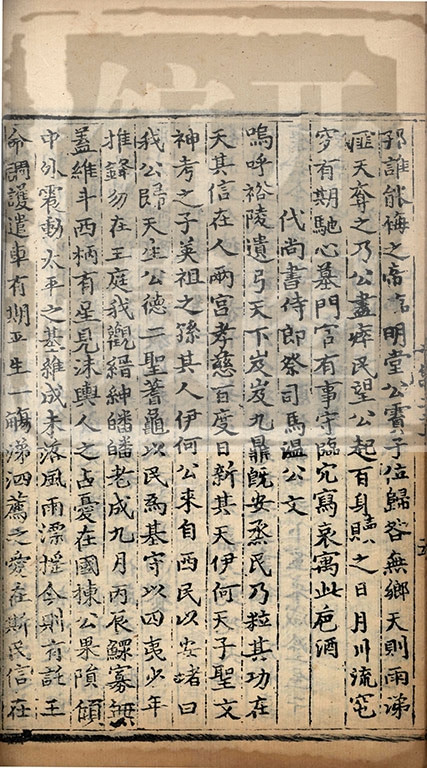 邪誰能侮之帝享明堂公賚予位歸咎無鄉天則雨涕
匪天奪之乃公盡瘁民望公起百身贖之日月川流宅
穸有期馳心墓門官有事守臨穴寫哀寓此巵酒
代尚書侍郎祭司馬溫公文
嗚呼裕陵遺弓天下岌岌九鼎既安烝民乃粒其功在
天其信在人兩宮孝慈百度日新其天伊何天子聖文
神考之子英祖之孫其人伊何公來自西民以安堵曰
我公歸天座公德二聖蓍龜以民為基守以四夷少年
推鋒勿在王庭我觀縉紳皤皤老成九月丙辰鰥寡無
蓋維斗西柄有星見沬輿人之占憂在國棟公果隕傾
中外震動太平之基維成未落風雨漂搖今則有託王
命調護遣車有期平生一觴涕泗薦之愛在斯民信在